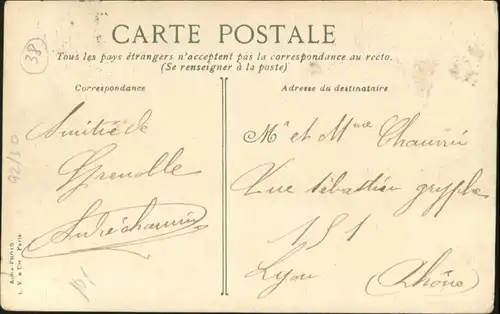 38
CARTE POSTALE
Tous les pays étrangers n'acceptent pas la correspondance au recto.
(Se renseigner à la poste)
Correspondance
Adresse du destinataire
Amitié de
Grenoble
André chauvin
Mr et Mme Chauvin
Rue Sébastien gryphe
151
Lyon
Rhône
92/30
L. V. & Cie - Paris